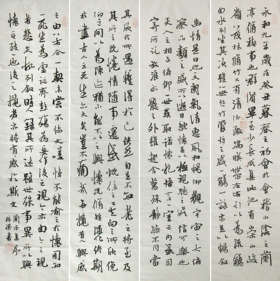 永和九年歲在癸丑暮春之初會於會稽山陰之蘭
亭脩禊事也群賢畢至少長咸集此地有崇山峻
領茂林脩竹又有清流激湍映帶左右引以為流觴
曲水列坐其次雖無絲竹管弦之盛一觴一詠亦足以暢敘
幽情是日也天朗氣清惠風和暢仰觀宇宙之大俯
察品類之盛所以遊目騁懷足以極視聽之娛信可樂也
夫人之相與俯仰一世或取諸懷抱悟言一室之內或因
寄所託放浪形骸之外雖趣舍萬殊靜躁不同當
其欣於所遇暫得於己快然自足不知老之將至及
其所之既惓情隨事遷感慨係之矣向之所欣俛仰
之間以為陳迹猶不能不以之興懷況脩短隨化終期
於盡古人云死生亦大矣豈不痛哉每攬昔人興感
之由若合一契未嘗不臨文嗟悼不能喻之於懷固知
一死生為虛誕齊彭殤為妄作後之視今亦由今之視昔
悲夫故列敘時人錄其所述雖世殊事異所以興
懷其致一也後之攬者亦將有感於斯文